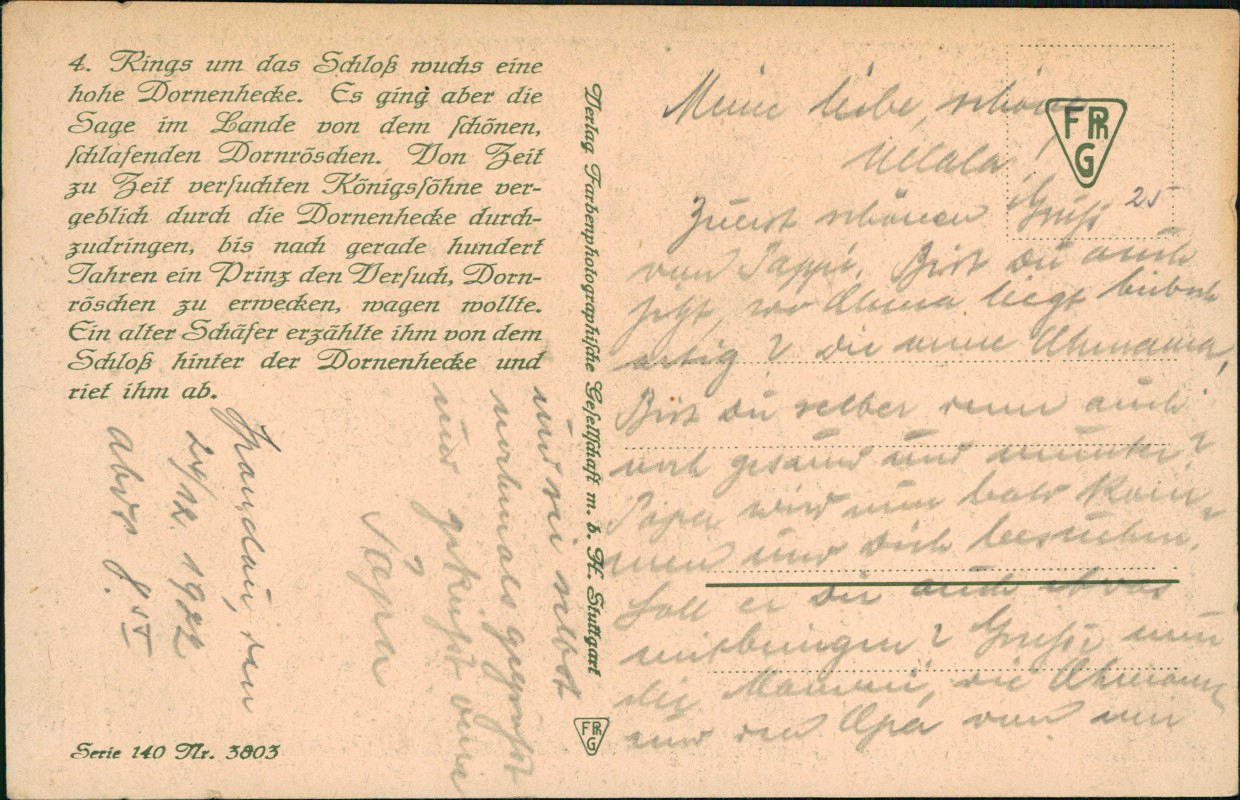 4. Rings um das Schloß wuchs eine
hohe Dornenhecke. Es ging aber die
Sage im Lande von dem schönen,
schlafenden Dornröschen. Von Zeit
zu Zeit versuchten Königssöhne ver-
geblich durch die Dornenhecke durch-
zudringen, bis nach gerade hundert
Jahren ein Prinz den Versuch, Dorn-
röschen zu erwecken, wagen wollte.
Ein alter Schäfer erzählte ihm von dem
Schloß hinter der Dornenhecke und
riet ihm ab.
Serie 140 Nr. 3803
Verlag Farbenphotographische Gesellschaft m. b. H. Stuttgart
FPhG
FPhG
25
Meine liebe, schöne
Ullala!
Zuerst schönen Gruß
von Pappi. Bist du auch
jetzt, wo Ahma liegt hübsch
artig? Die arme Ahmama,
Bist du selber denn auch
noch gesund und munter?
Papa wird nun bald kom-
men und dich besuchen.
Soll er dir auch etwas
mitbringen? Grüße nun
die Mammi, die Ahmama
und den Opa von mir
und sei selbst
nochmals gegrüßt
und geküßt vom
Papa
Spandau, den
24/12. 1922